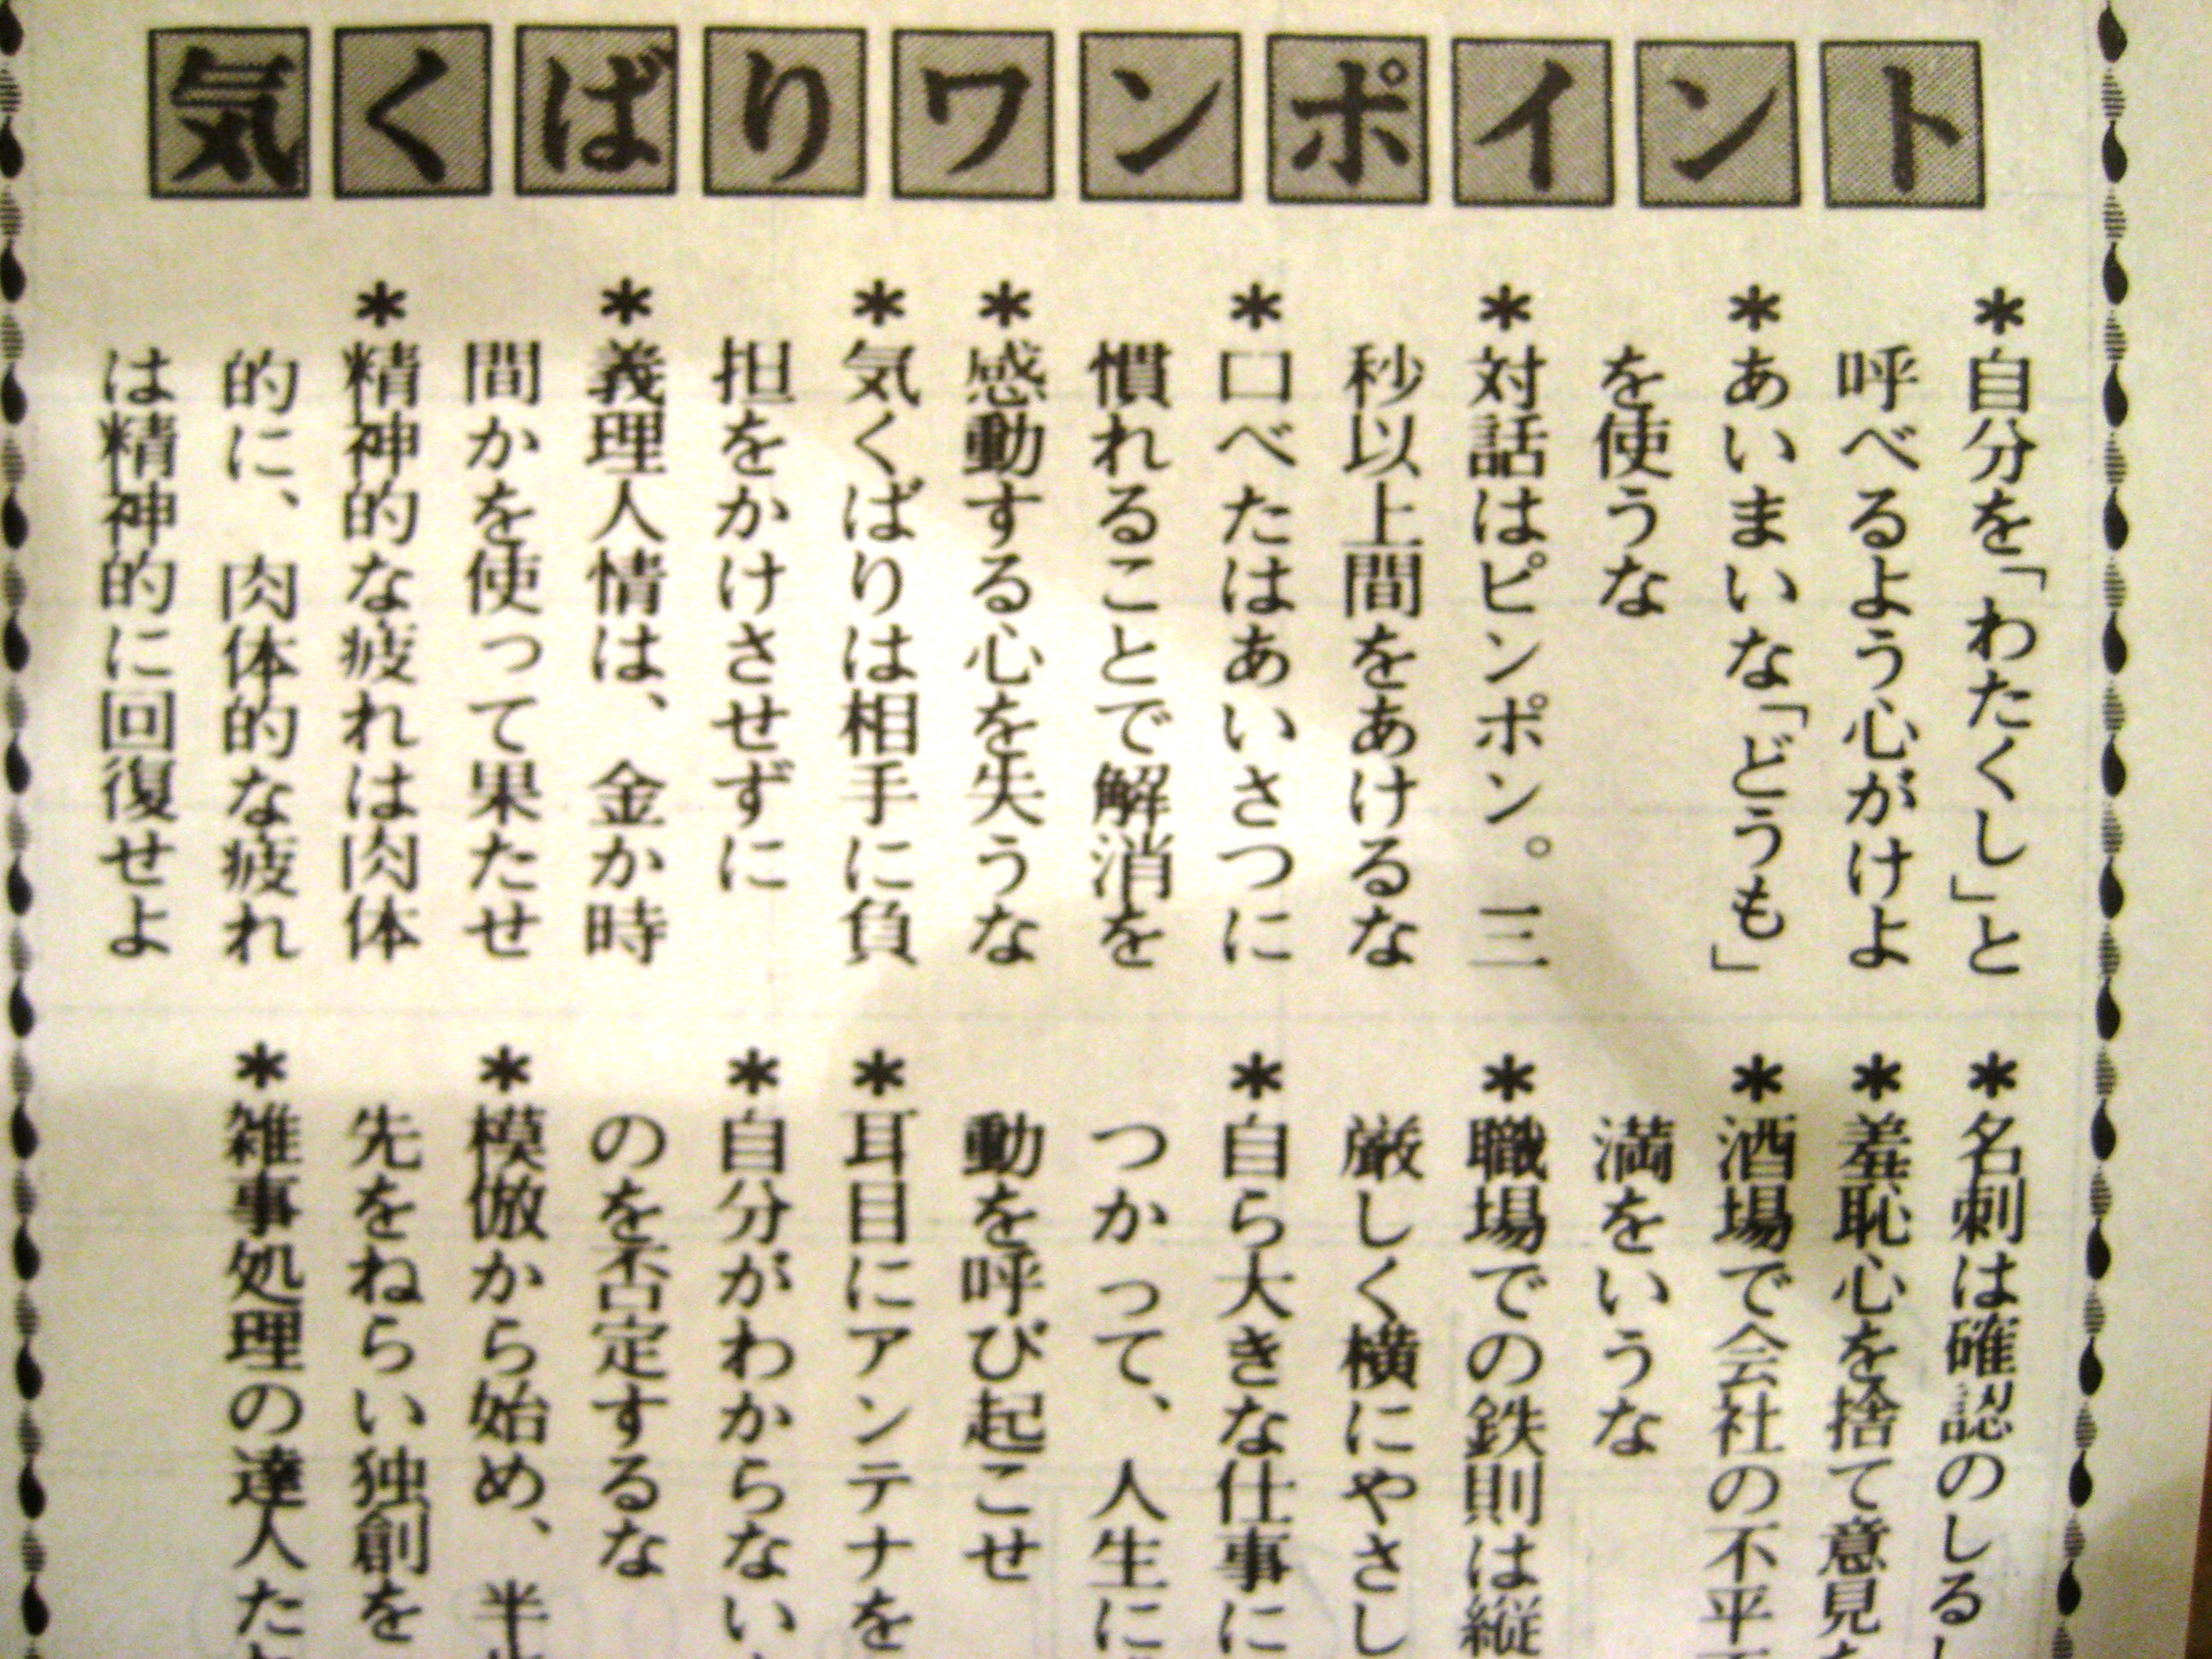 気くばりワンポイント
＊自分を「わたくし」と
呼べるよう心がけよ
＊あいまいな「どうも」
を使うな
＊対話はピンポン。三
秒以上間をあけるな
＊口べたはあいさつに
慣れることで解消を
＊感動する心を失うな
＊気くばりは相手に負
担をかけさせずに
＊義理人情は、金か時
間かを使って果たせ
＊精神的な疲れは肉体
的に、肉体的な疲れ
は精神的に回復せよ
＊名刺は確認のしるし
＊羞恥心を捨て意見
＊酒場で会社の不平
満をいうな
＊職場での鉄則は縦
厳しく横にやさし
＊自ら大きな仕事に
つかって、人生に
動を呼び起こせ
＊耳目にアンテナを
＊自分がわからない
のを否定するな
＊模倣から始め、半
先をねらい独創を
＊雑事処理の達人た